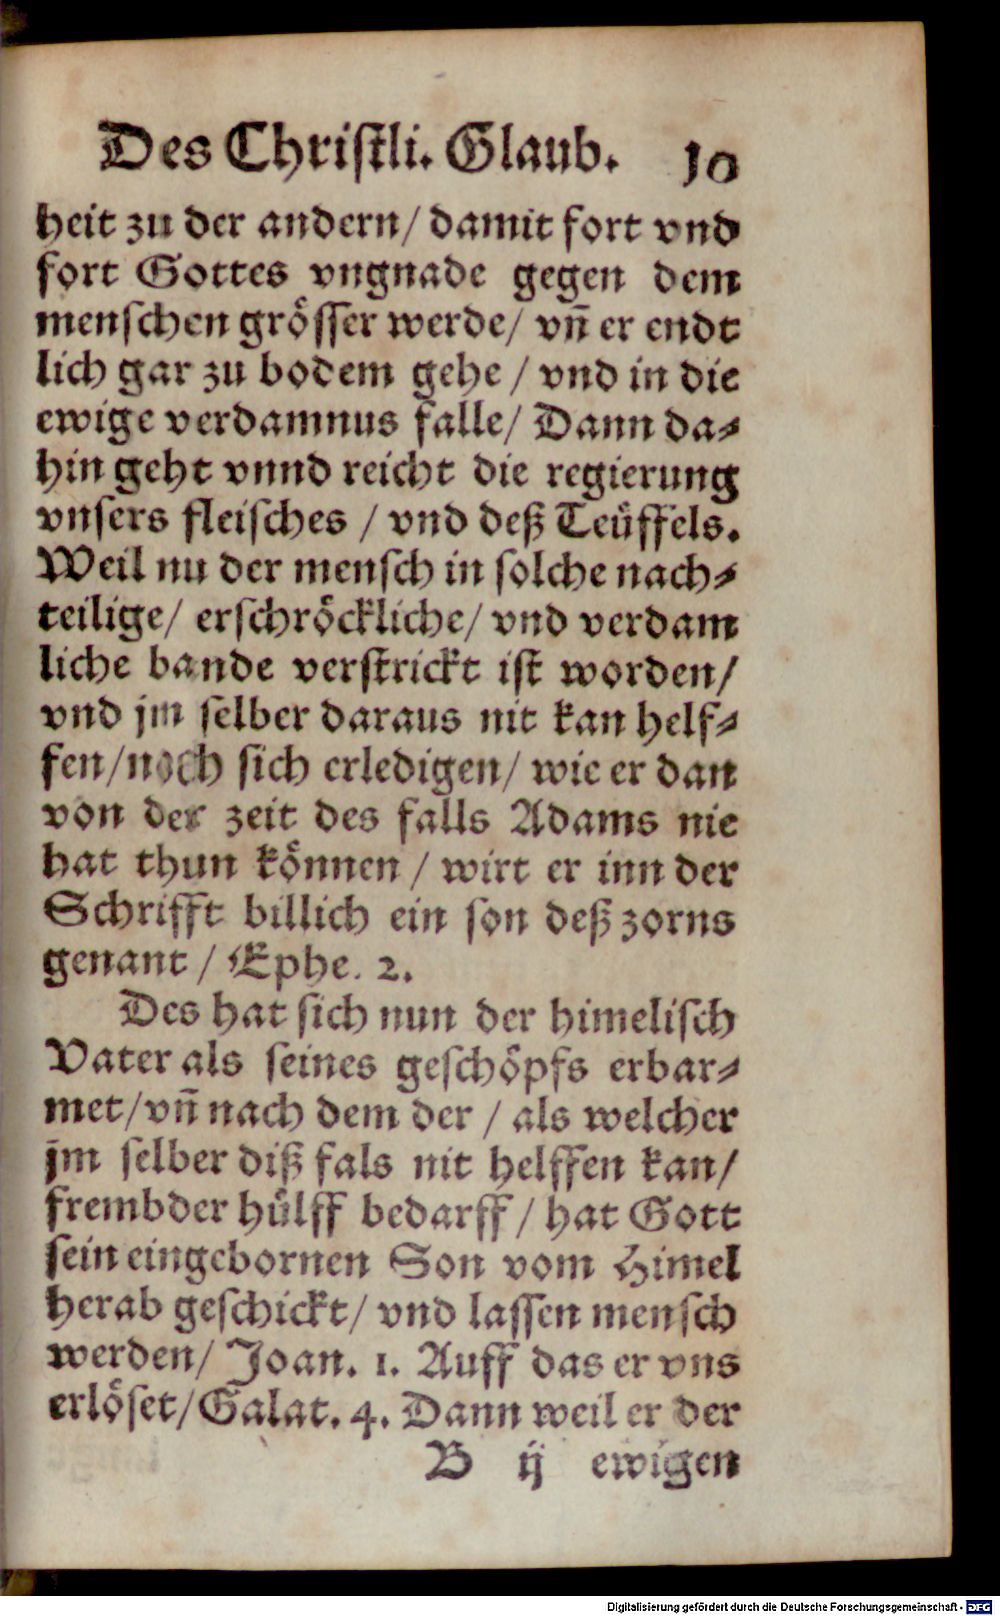 Des Christli. Glaub. 10
heit zu der andern/ damit fort vnd
fort Gottes vngnade gegen dem
menschen grösser werde/ vñ er endt
lich gar zu bodem gehe / vnd in die
ewige verdamnus falle/ Dann da⸗
hin geht vnnd reicht die regierung
vnsers fleisches / vnd deß Teüffels.
Weil nu der mensch in solche nach⸗
teilige/ erschröckliche/ vnd verdam
liche bande verstrickt ist worden/
vnd jm selber daraus nit kan helf⸗
fen/noch sich erledigen/ wie er dan
von der zeit des falls Adams nie
hat thun können / wirt er inn der
Schrifft billich ein son deß zorns
genant / Ephe. 2.
Des hat sich nun der himelisch
Vater als seines geschöpfs erbar⸗
met/vñ nach dem der / als welcher
jm selber diß fals nit helffen kan/
frembder hülff bedarff / hat Gott
sein eingebornen Son vom Himel
herab geschickt/ vnd lassen mensch
werden/ Joan. 1. Auff das er vns
erlöset/Galat. 4. Dann weil er der
B ij ewigen
Digitalisierung gefördert durch die Deutsche Forschungsgemeinschaft - DFG